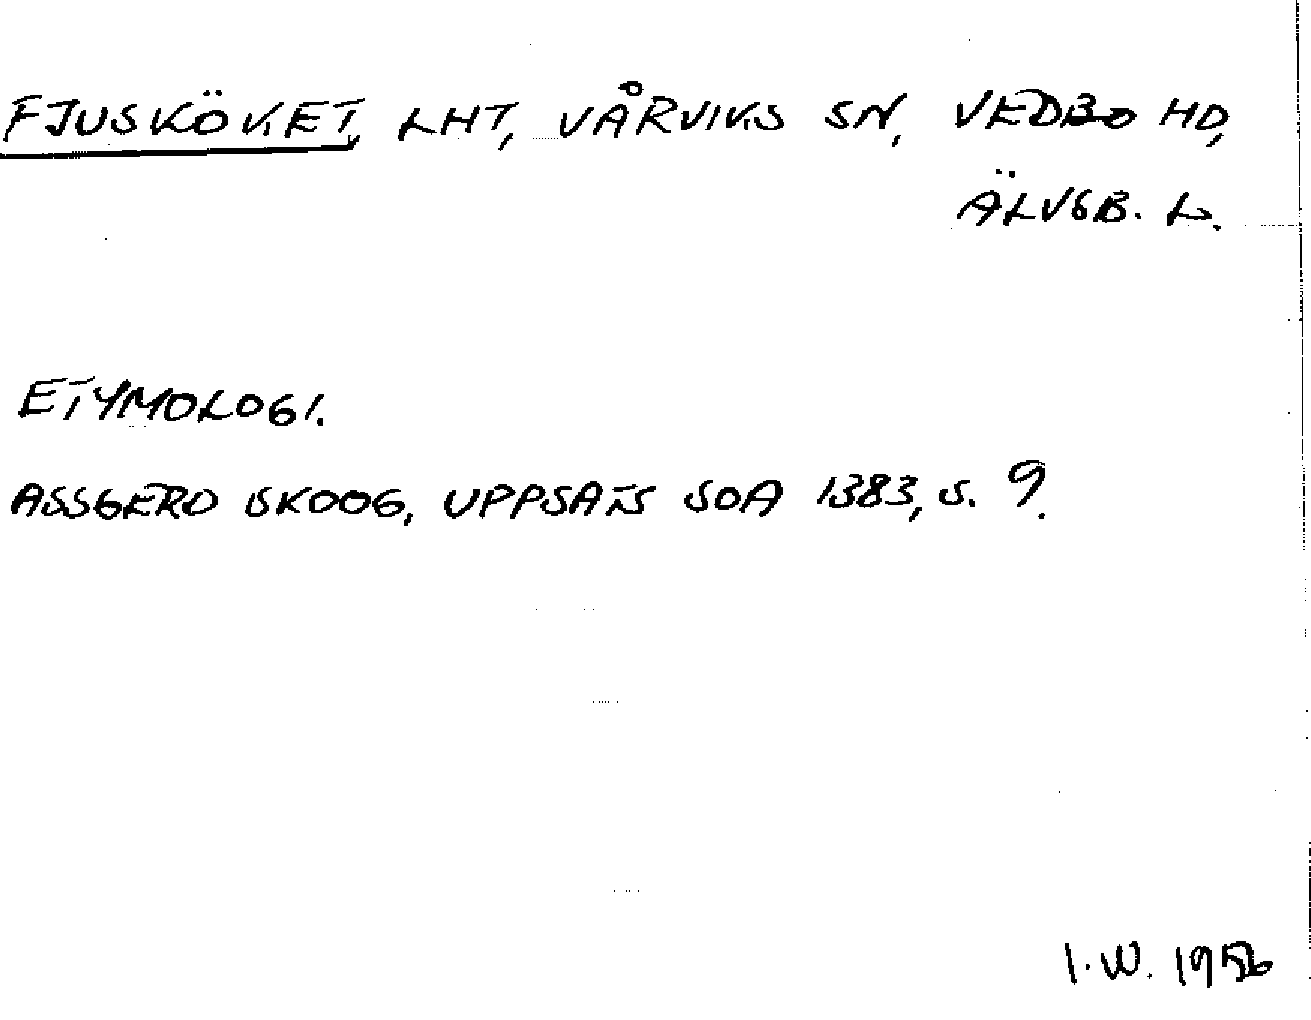 FJUSKÖKET, LHT, VÅRVIKS SN, VEDBO HD,
ÄLVSB. L.
ETYMOLOGI.
ASSGERD SKOOG, UPPSATS SOA 1383, S. 9.
I.W. 1956